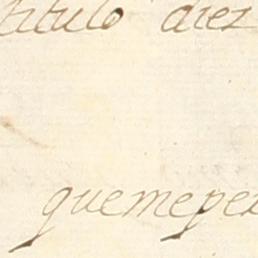 titulo diez
quemeper